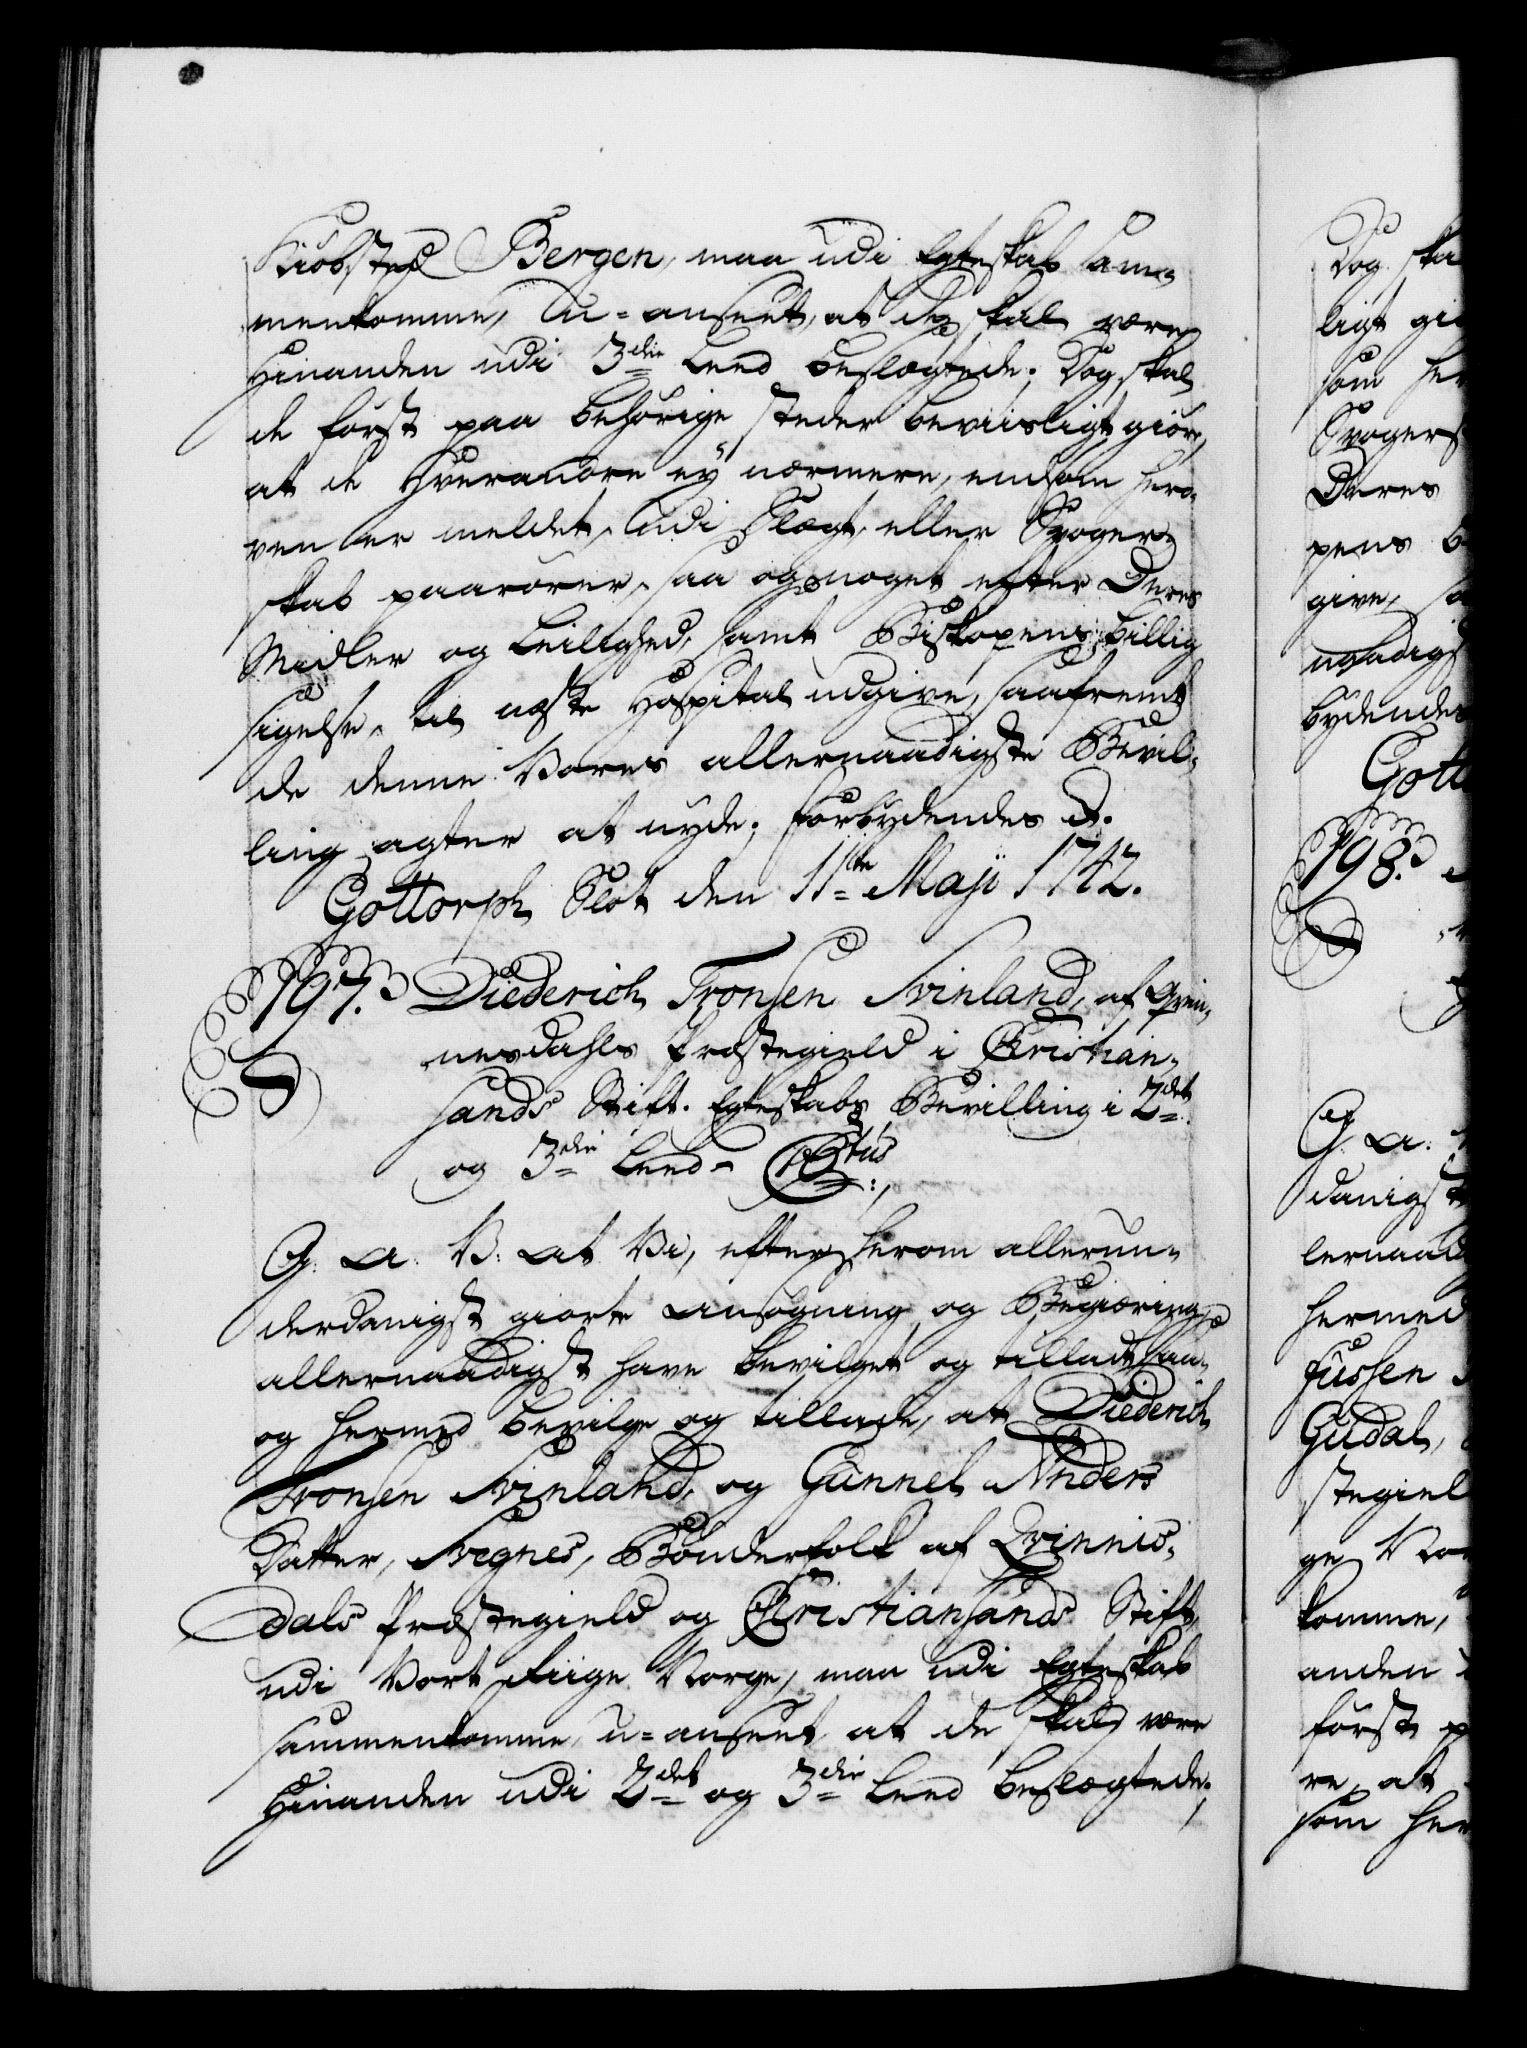 Kiöbsted Bergen, maa udi Egteskab sam-
menkomme, u-anseet, at de skal være
Hinanden udi 3die Leed beslægtede; Dog skal
de først paa behörige steder beviisligt giöre,
at de Hverandre ey nærmere, end som hero-
ven er meldet, udi Slægt, eller Svoger-
skab paarörer, saa og noget efter Deres
Midler og Leilighed, samt Biskopens billig
sigelse, til næste Hospital udgive, saafremt
de denne Vores allernaadigste Bevil-
ling agter at nyde; Forbydendes &.
Gottorph Slot den 11te Maji 1742.
197. Diederich Tronsen Svinland, af Qvin-
nesdahls Præstegield i Christian-
sands Stift. Egteskabs Bevilling i 2det
og 3die Leed.
G. A. V: at Vi, efter herom allerun-
derdanigst giorte Ansögning og Begiæring,
allernaadigst have bevilget og tilladt, saa
og hermed bevilge og tillade, at Diederich
Tronsen Svinland, og Gunnel Anders
Datter, Svegnes, Bönderfolk af Qvinnis-
dals Præstegield og Christiansands Stift,
udi Vort Riige Norge, maa udi Egteskab
sammenkomme, u-anseet at de skal være
Hinanden udi 2det og 3die Leed beslægtede;
Dog ska
ligt gi
som her
Svogers
Deres
pens b
give, sa
naadigs
bydendes
Gott
198.
G. A.
danigst
lernaad
hermed
Jussen
Gudal,
stegiel
ge Nor
komme,
anden
först p
re, at
som her